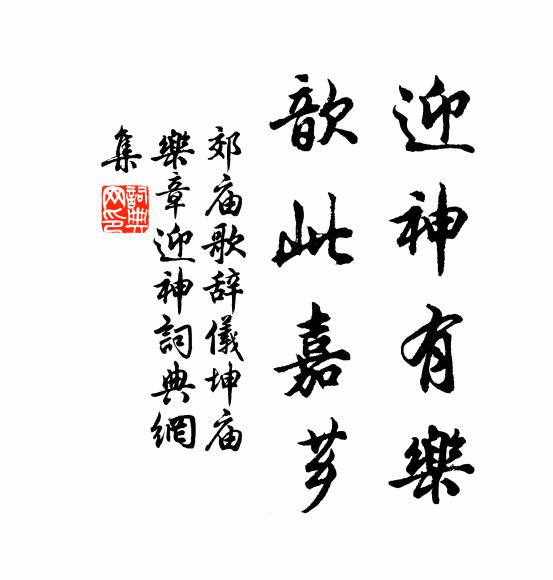 迎神有樂
歆此嘉芗
郊庙歌辞儀坤庙
樂章迎神詞典網
集
詞典
网印